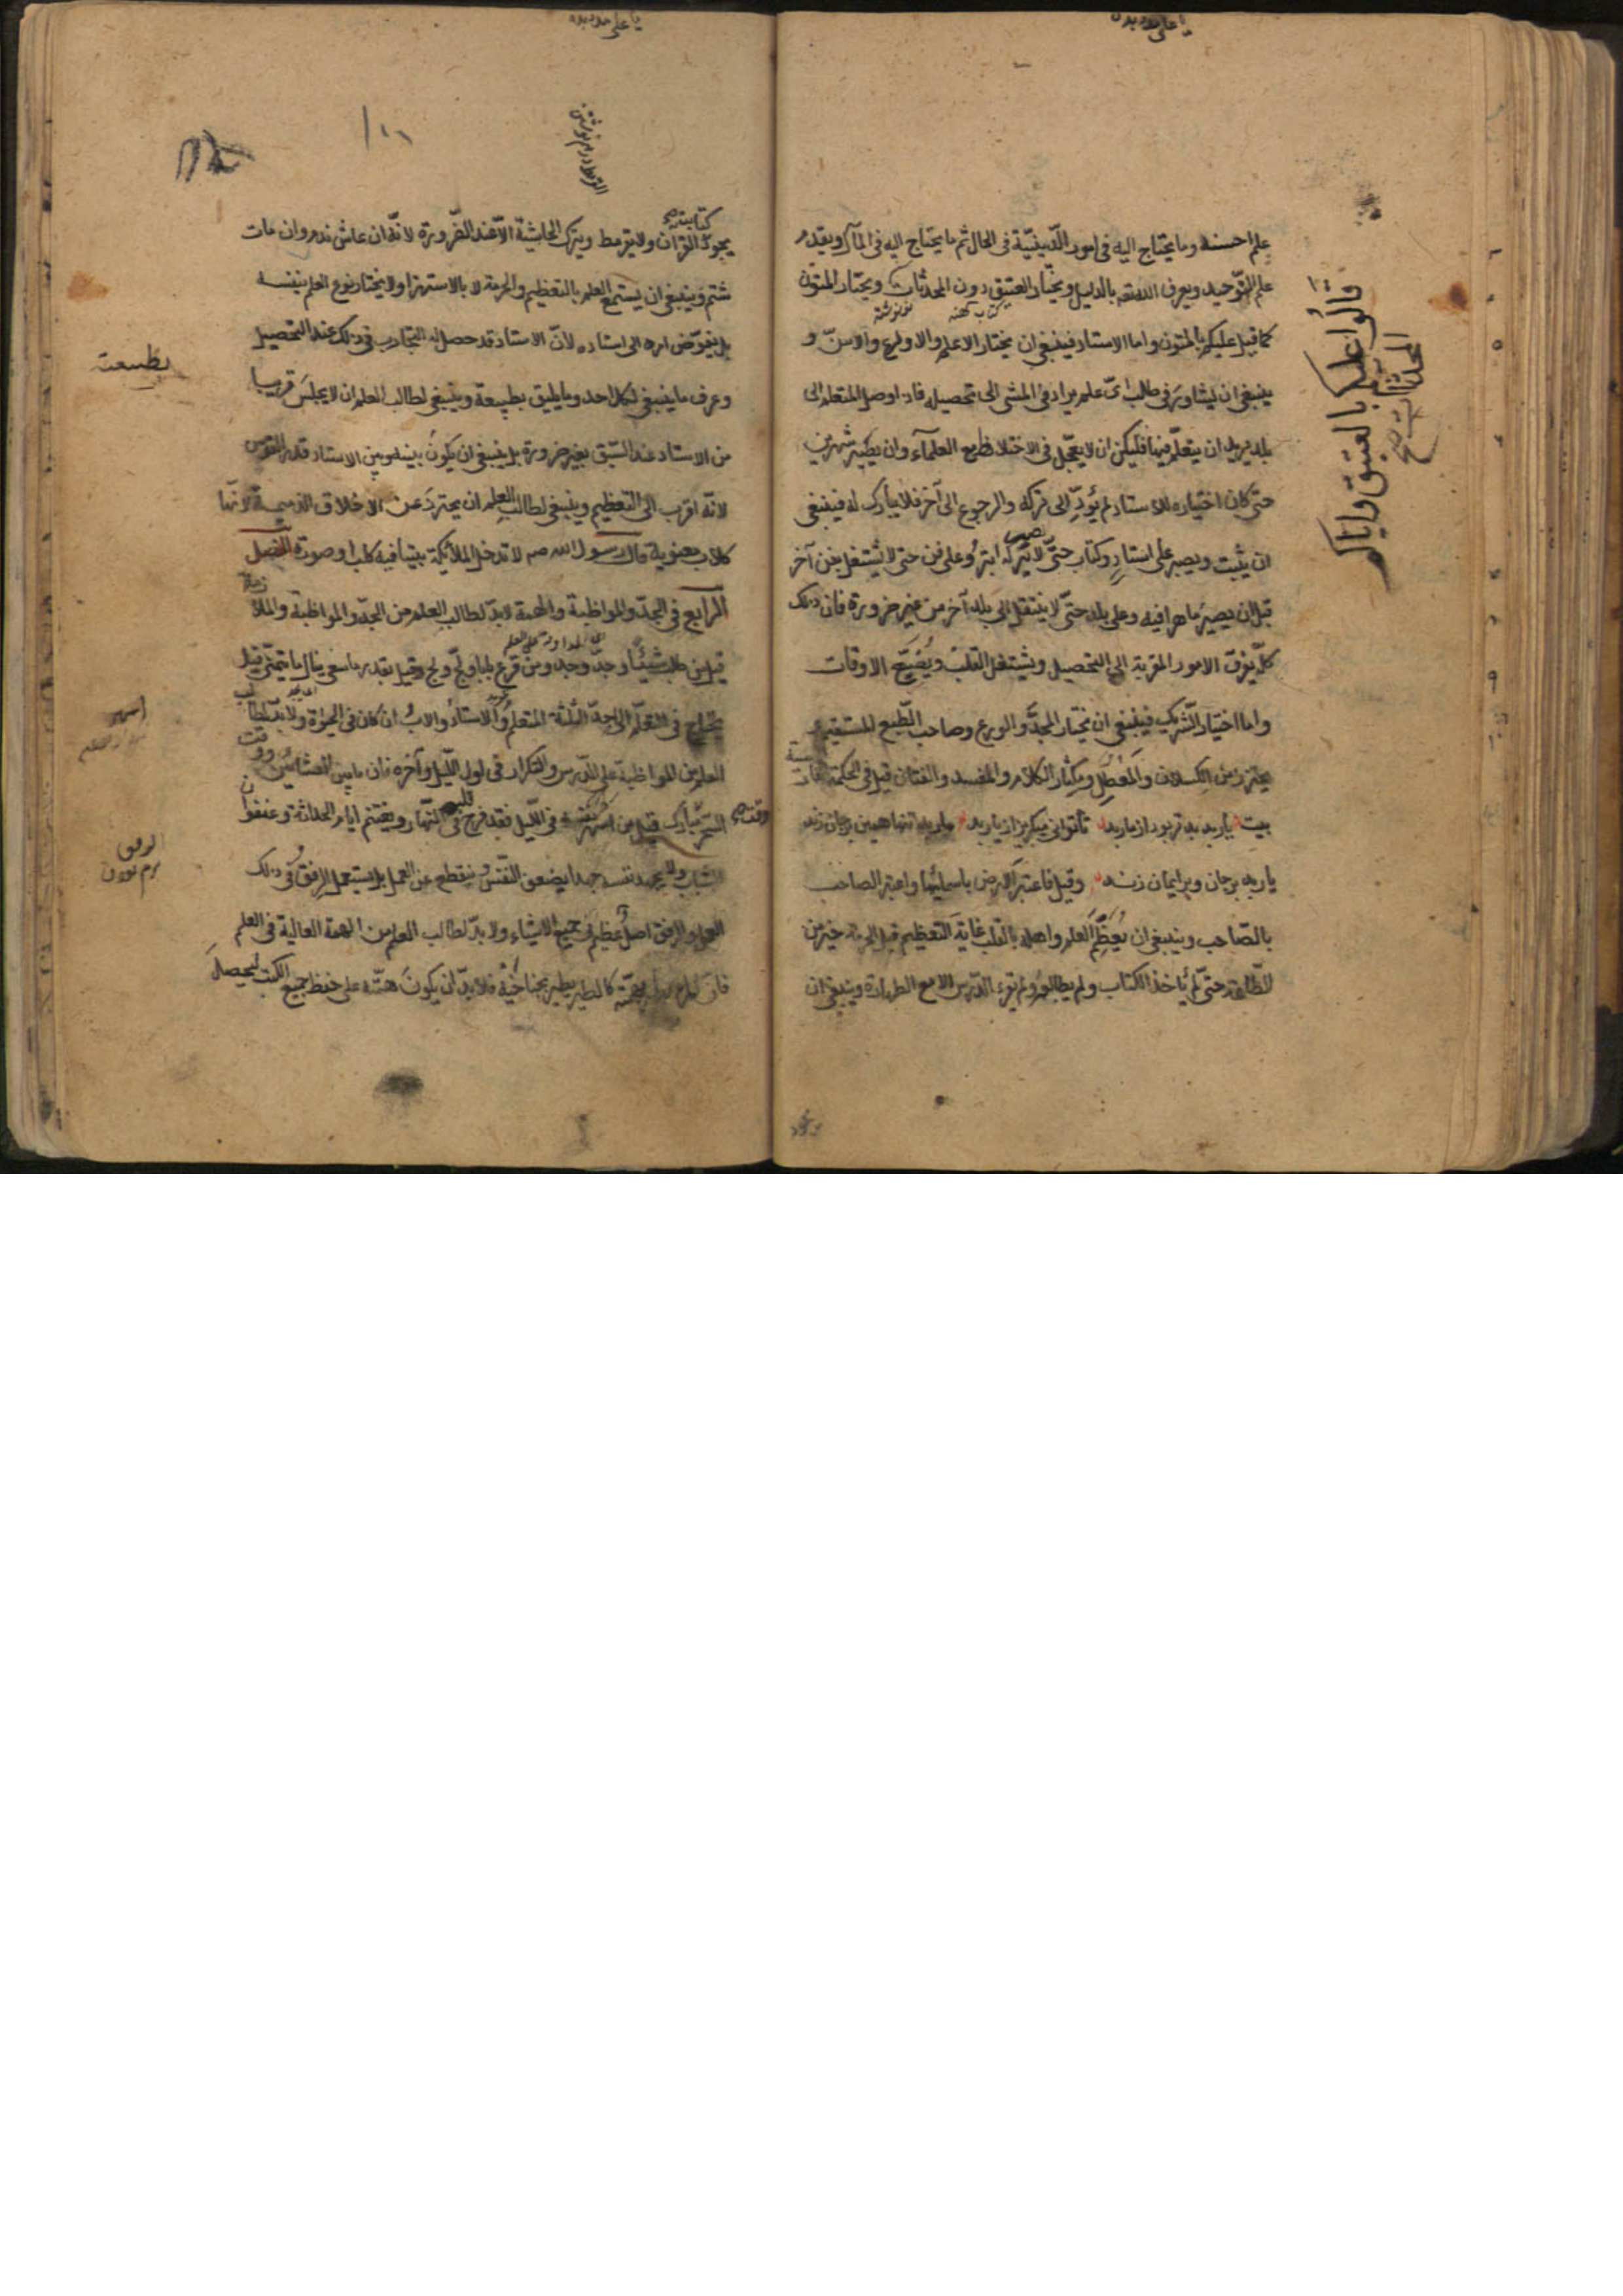 علم احسنه وما يحتاج اليه فى امور الدّينيّة فى الحال ثم ما يحتاج اليه فى المآل ويقدم
علم التّوحيد ويعرف الله تعه بالدليل ويختار العتيق دون المحدثات ويختار المتون
كتاب كهنه
كما قيل عليكم بالمتون واما الاستاد فينبغى ان يختار الاعلم والاورع والاسنّ و
ينبغى ان يشاور فى طلب اىّ علم يراد فى المشى الى تحصيله فاذا وصل المتعلم الى
بلد يريد ان يتعلّم فيها فليكن ان لا يعجّل فى الاختلاط مع العلمآء وان يصبر شهرين
حتى كان اختياره للاستاد لم يؤدّ الى تركه والرجوع الى آخر فلا يبارك له فينبغى
ان يثبت ويصبر على استاد وكتاب حتّى لا يتركه ابتر وعلى فن حتى لا يشتغل بفن آخر
قبل ان يصير ماهرا فيه وعلى بلد حتّى لا ينتقل الى بلد آخر من غير ضرورة فان ذلك
كلّه يفرق الامور المقربة الى التحصيل ويشتغل القلب ويُضيّع الاوقات
واما اختيار الشّريك فينبغى ان يختار المجدّ والورع وصاحب الطّبع المستقيم و
يحترز من الكسلان والمعطّل ومكثار الكلام والمفسد والفتان قيل فى الحكمة
بيت يار بد بدتر بود از مار بد تا توانى ميكريز از يار بد مار بد تنها همين بر جان زند
يار بد بر جان وبر ايمان زند وقيل فاعتبر الارض باسمائها واعتبر الصاحب
بالصّاحب وينبغى ان يُعظّم العلم واهله بالقلب غاية التعظيم قيل الحرمة خير من
الطّاعة حتى لم يأخذ الكتاب ولم يطالع ولم يقرء الدّرس الا مع الطهارة وينبغى ان
قالوا عليكم بالعتيق واياكم
المحدثات
يا على مدد
كتابته
يجوّد القرآن ولا يقرمط ويترك الحاشية الّا عند الضّرورة لانّه ان عاش ندم وان مات
شتم وينبغى ان يستمع العلم بالتعظيم والحرمة لا بالاستهزا ولا يختار نوع العلم بنفسه
بل يفوّض امره الى استاده لانّ الاستاد قد حصل له التجارب فى ذلك عند التحصيل
وعرف ما ينبغى لكل احد وما يليق بطبيعة وينبغى لطالب العلم ان لا يجلس قريبا
من الاستاد عند السّبق بغير ضرورة بل ينبغى ان يكون بينه وبين الاستاد قدر القوس
لانّه اقرب الى التعظيم وينبغى لطالب العلم ان يحترز عن الاخلاق الذميمة لانّها
كلاب معنوية قال رسول الله صم لا تدخل الملائكة بيتا فيه كلب او صورة الفصل
الرابع فى الجدّ والمواظبة والهمة لا بدّ لطالب العلم من الجدّ والمواظبة والملا
زمة
قيل من طلب شيئًا وجدّ وجد ومن قرع بابا ولجّ ولج وقيل بقدر ما سعى ينال ما يتمنّى قيل
يحتاج فى التعلّم الى جدّ الثلثة المتعلم والاستاد والاب ان كان فى الحيوة ولا بدّ لطالب
العلم من المواظبة على الدّرس والتكرار فى اول الليل وآخره فان ما بين العشائين ووقت
السّحر مبارك قيل من اسهر نفسه فى الليل فقد فرح قلبه فى النّهار ويغتنم ايام الحداثة وعنفوان
الشباب ولا يجهد نفسه جهدا يضعف النّفس وينقطع عن العمل بل يستعمل الرفق فى ذلك
العمل والرفق اصل عظيم فى جميع الاشياء ولا بدّ لطالب العلم من الهمة العالية فى العلم
فان المرء يطير بهمّته كالطير يطير بجناحيه فلا بدّ ان يكون همّته على حفظ جميع الكتب ليحصل
بطبيعت
الرفق
نرم بودن